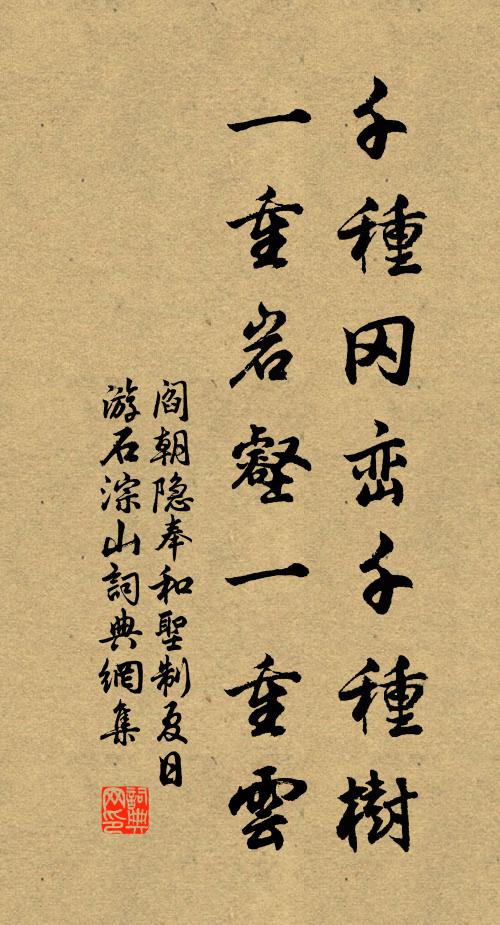 千種冈峦千種樹
一重岩壑一重雲
阎朝隐奉和聖制夏日
游石淙山詞典網集
詞典网印